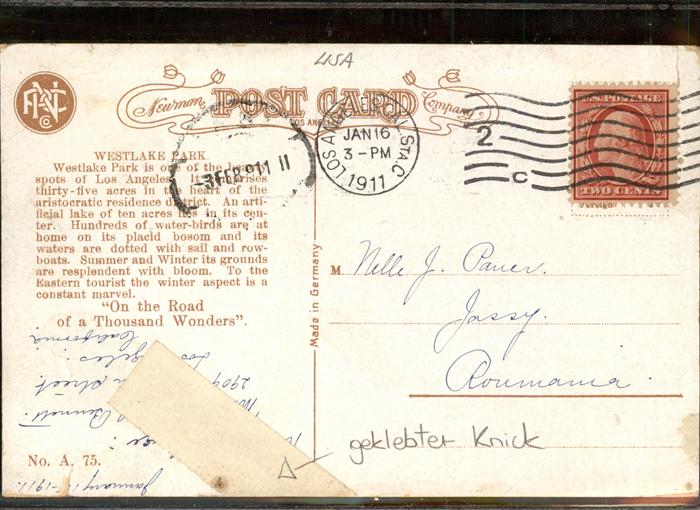 USA
Newman POST CARD Company
LOS ANGELES
WESTLAKE PARK
Westlake Park is one of the beauty
spots of Los Angeles. It comprises
thirty-five acres in the heart of the
aristocratic residence district. An arti-
ficial lake of ten acres lies in its cen-
ter. Hundreds of water-birds are at
home on its placid bosom and its
waters are dotted with sail and row-
boats. Summer and Winter its grounds
are resplendent with bloom. To the
Eastern tourist the winter aspect is a
constant marvel.
"On the Road
of a Thousand Wonders".
No. A. 75.
3 FEB 911 11
LOS ANGELES, CAL. STA. C
JAN 16
3 - PM
1911
2
C
U.S. POSTAGE
TWO CENTS
Made in Germany
M Nelle J. Pauer.
Jassy.
Roumania.
geklebter Knick
January 1911.
Bennett.
2909 street
Los Angeles.
California